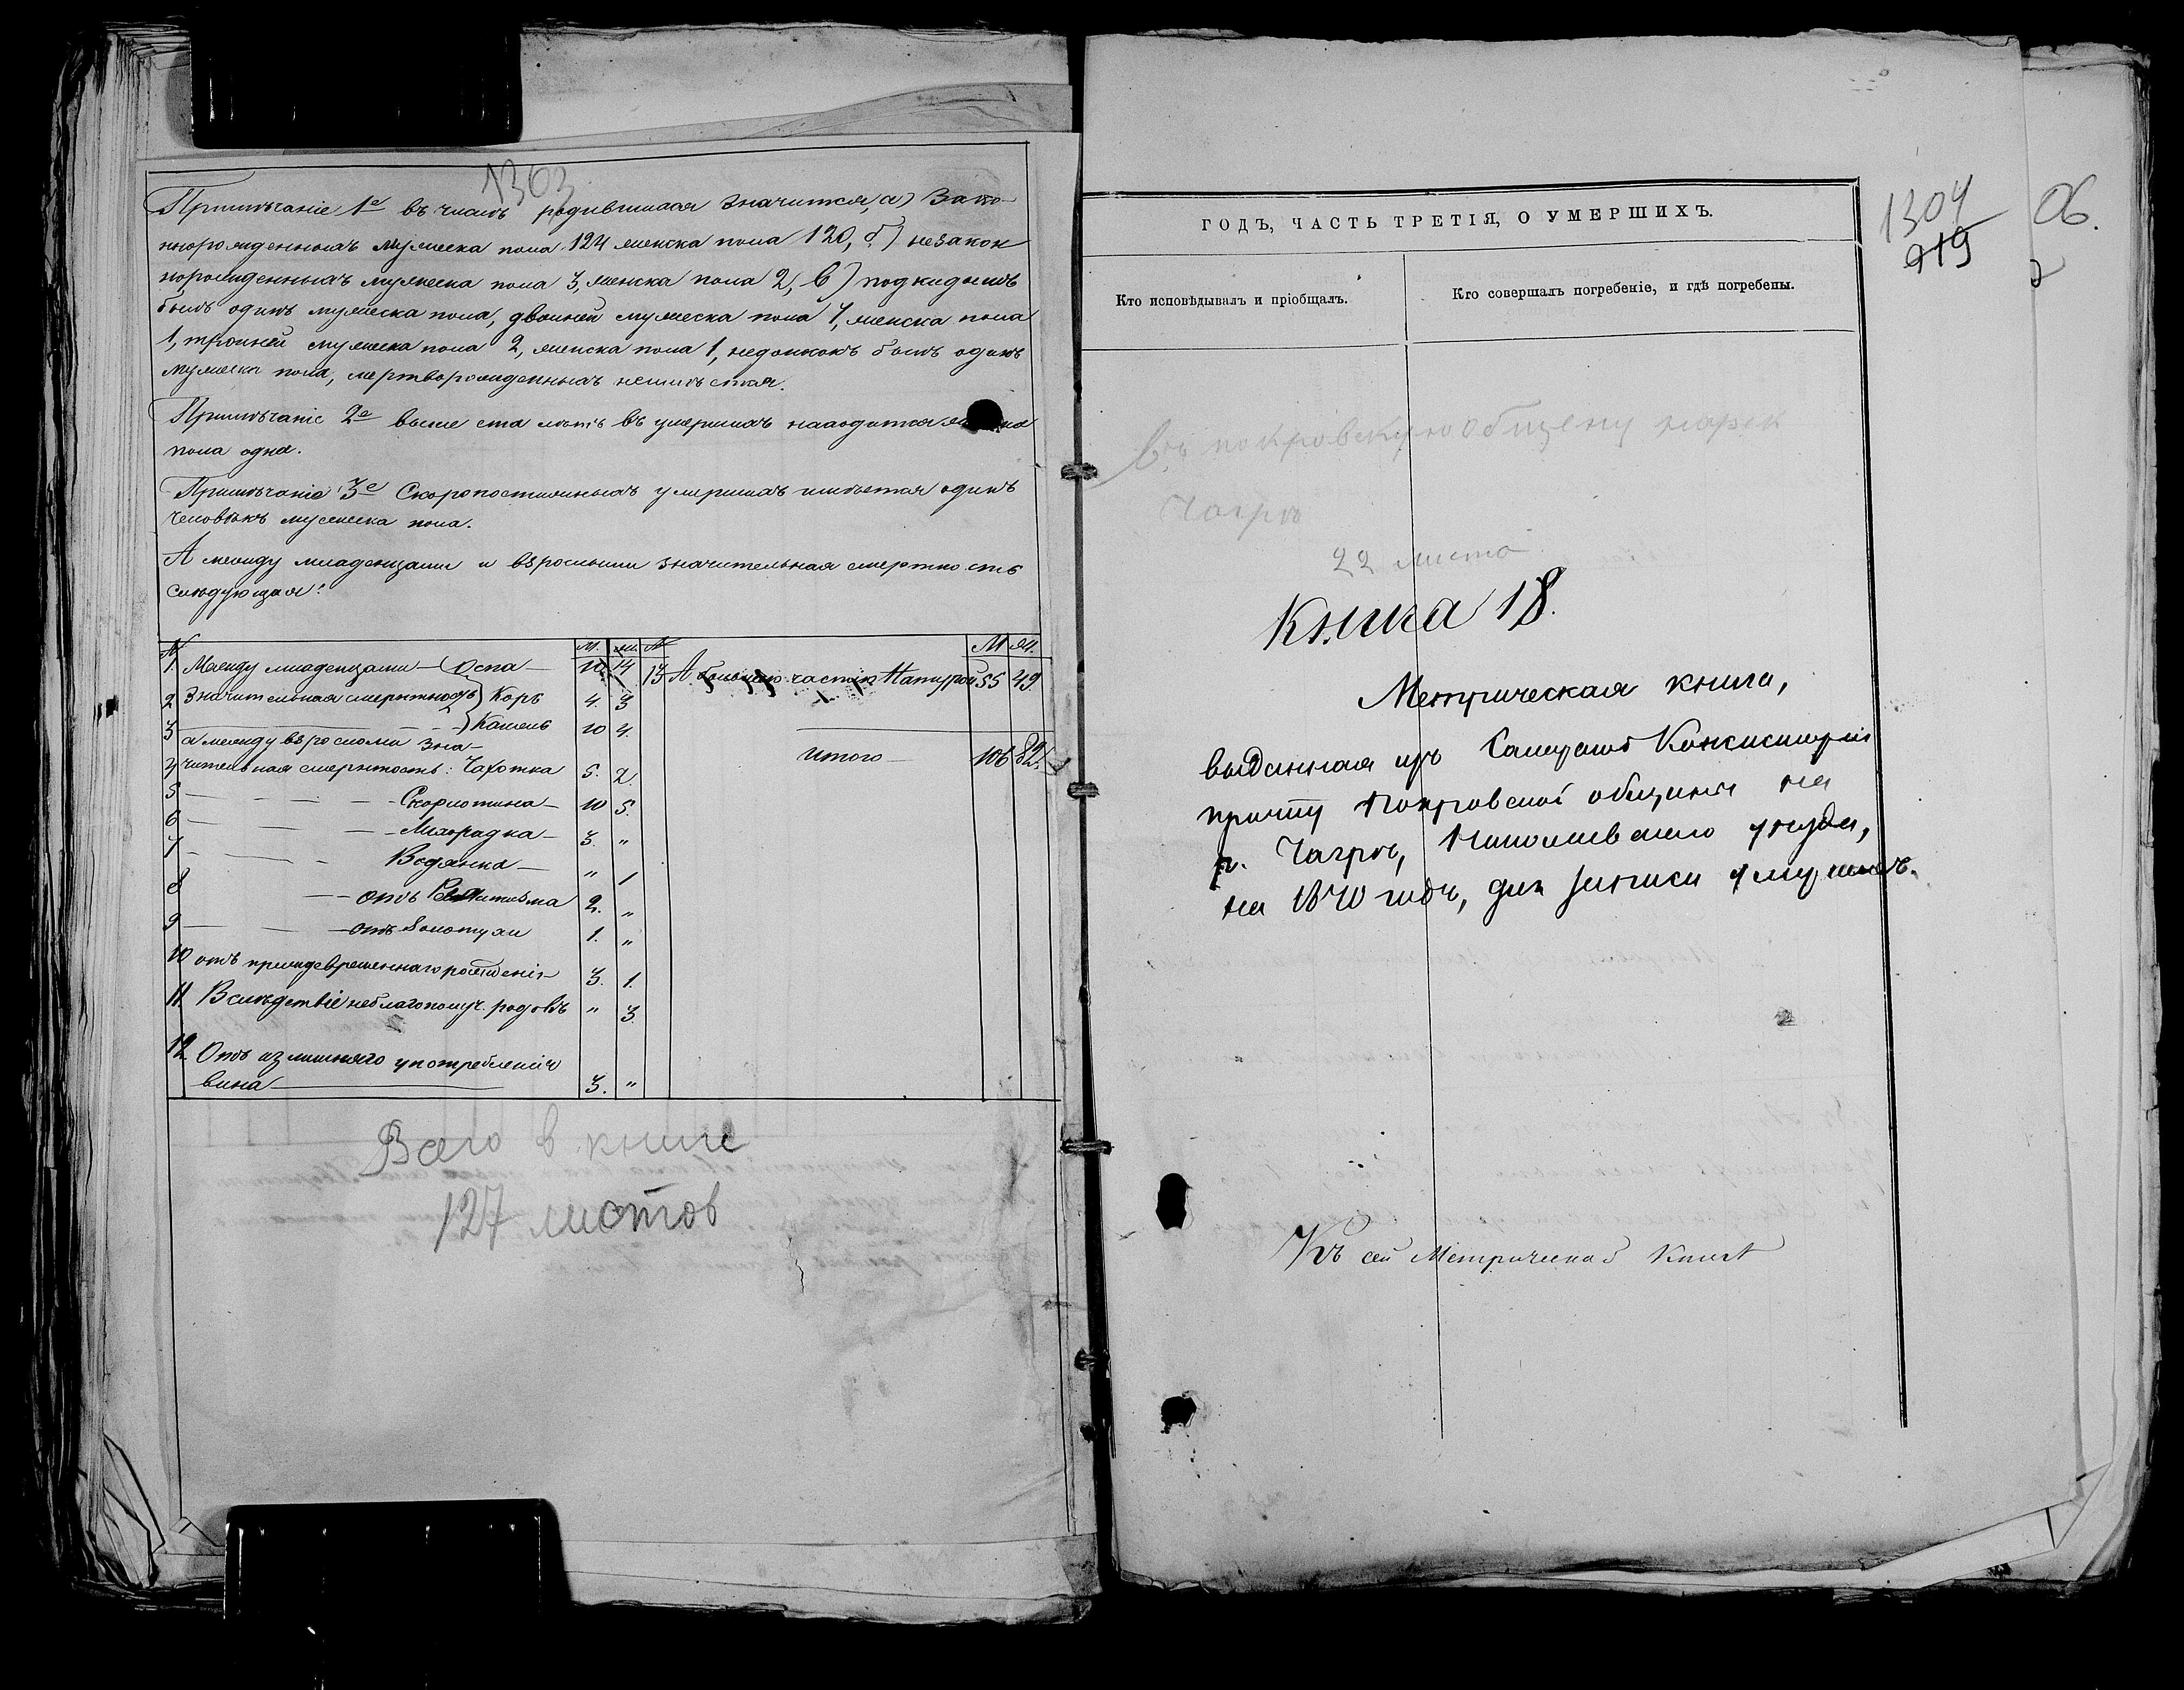 1303
Примѣчаніе 1е въ числѣ родившихся значится, а) Зако-
ннорожденныхъ мужеска пола 124 женска пола 120, б) незакон
норожденныхъ мужеска пола 3, женска пола 2, в) подкидышъ
былъ одинъ мужеска пола, двойней мужеска пола 4, женска пола
1, тройней мужеска пола 2, женска пола 1, недоносокъ былъ одинъ
мужеска пола, мертворожденныхъ неимѣется.
Примѣчаніе 2е выше ста лѣтъ въ умершихъ находится
пола одна.
Примѣчаніе 3е Скоропостижныхъ умершихъ имѣется одинъ
человѣкъ мужеска пола.
А между младенцами и взрослыми значительная смертность
слѣдующая:
№ М. ж. № М ж.
1. Между младенцами — Оспа — 10. 14 13 А большею частію Натурой 55 49
2 Значительная смертность Корь 4. 3
3 Кашель 10 4.
а между взрослыми зна-
4 чительная смертность: Чахотка 5. 2. Итого — 106 82
5 — Скорлотина — 10 5.
6 — Лихорадка — 3. "
7 — Водянка — " 1
8 — отъ 2. "
9 — отъ Золотухи 1. "
10 отъ преждевременнаго рожденія 3. 1.
11. Вслѣдствіе неблагополуч. родовъ " 3.
12 Отъ излишняго употребленія
вина — 3. "
Всего в книге
127 листов
1304
219
Об.
2
ГОДЪ, ЧАСТЬ ТРЕТІЯ, О УМЕРШИХЪ.
Кто исповѣдывалъ и пріобщалъ.
Кто совершалъ погребеніе, и гдѣ погребены.
Въ покровскую общену
Чагрѣ
22 листа
Книга 18.
Метрическая книга,
выданная изъ Консисторіи
причту Покровской общины на
р. Чагрѣ, Николаевскаго уѣзда,
на 1870 годъ, для записи умершихъ.
Къ сей Метрической Книгѣ